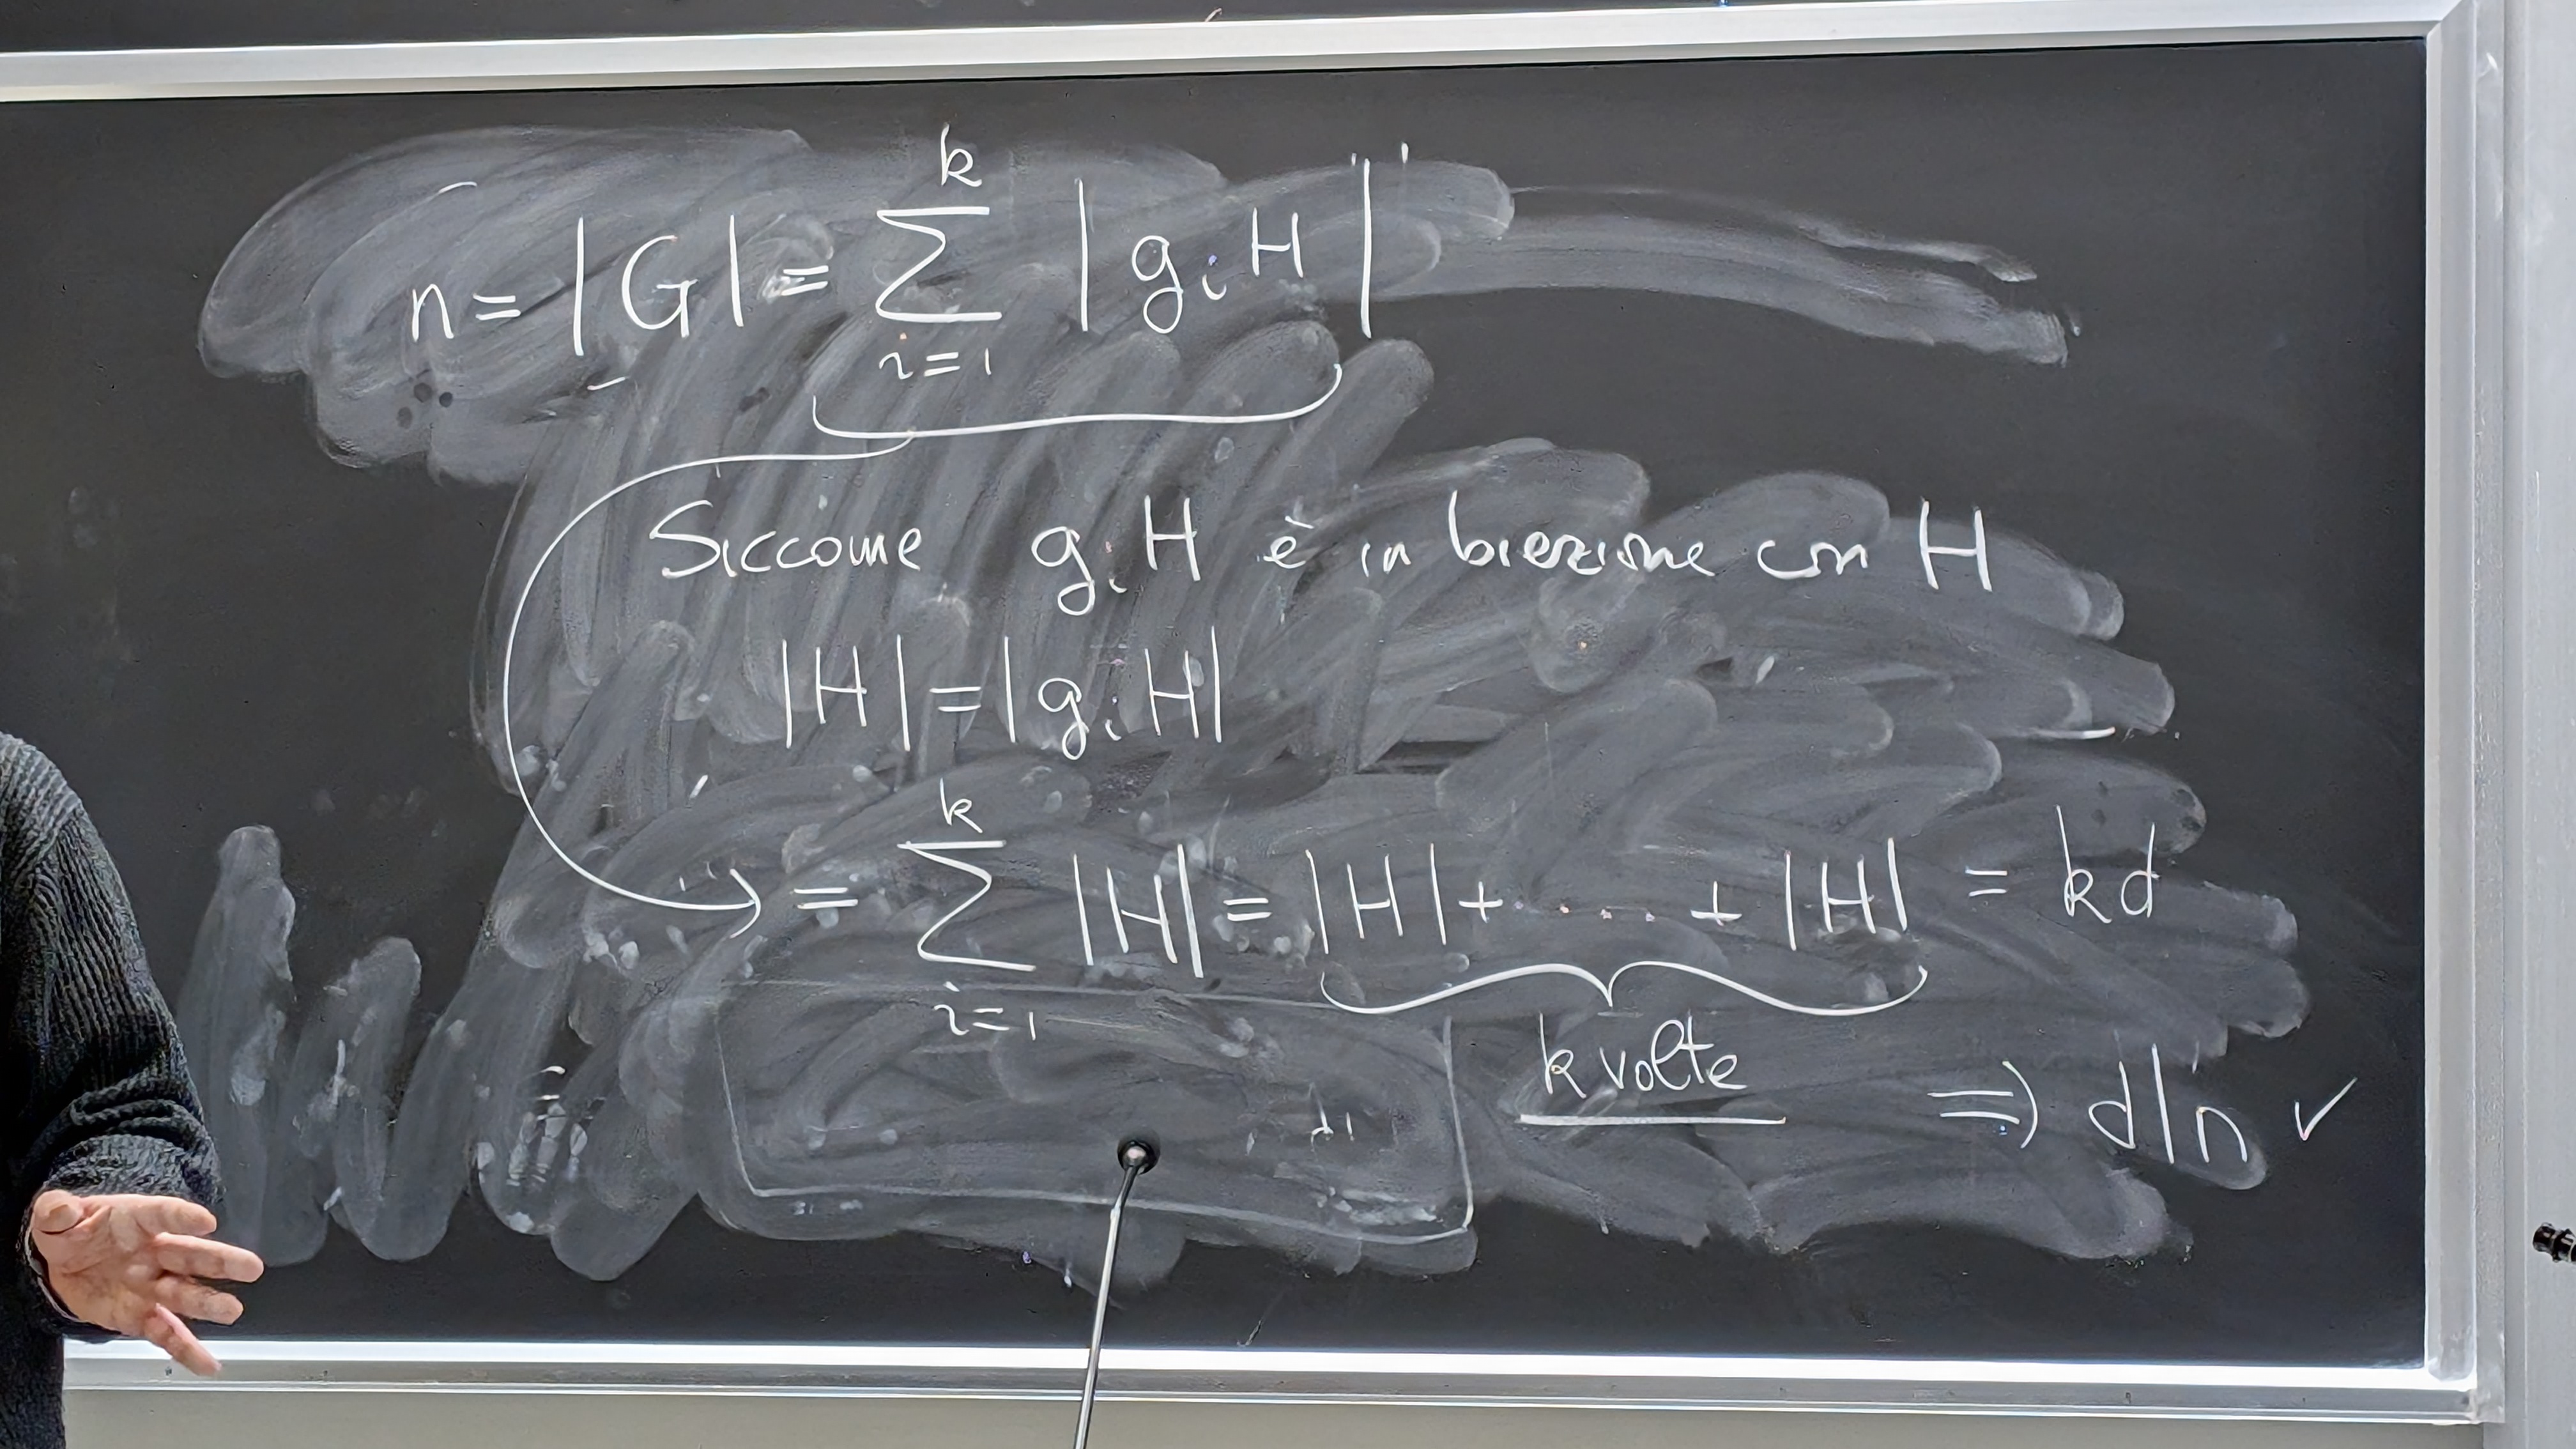 n = |G| = \sum_{i=1}^{k} |g_i H|
Siccome g_i H è in biezione con H
|H| = |g_i H|
= \sum_{i=1}^{k} |H| = |H| + ..... + |H| = kd
k volte ⇒ d|n ✓